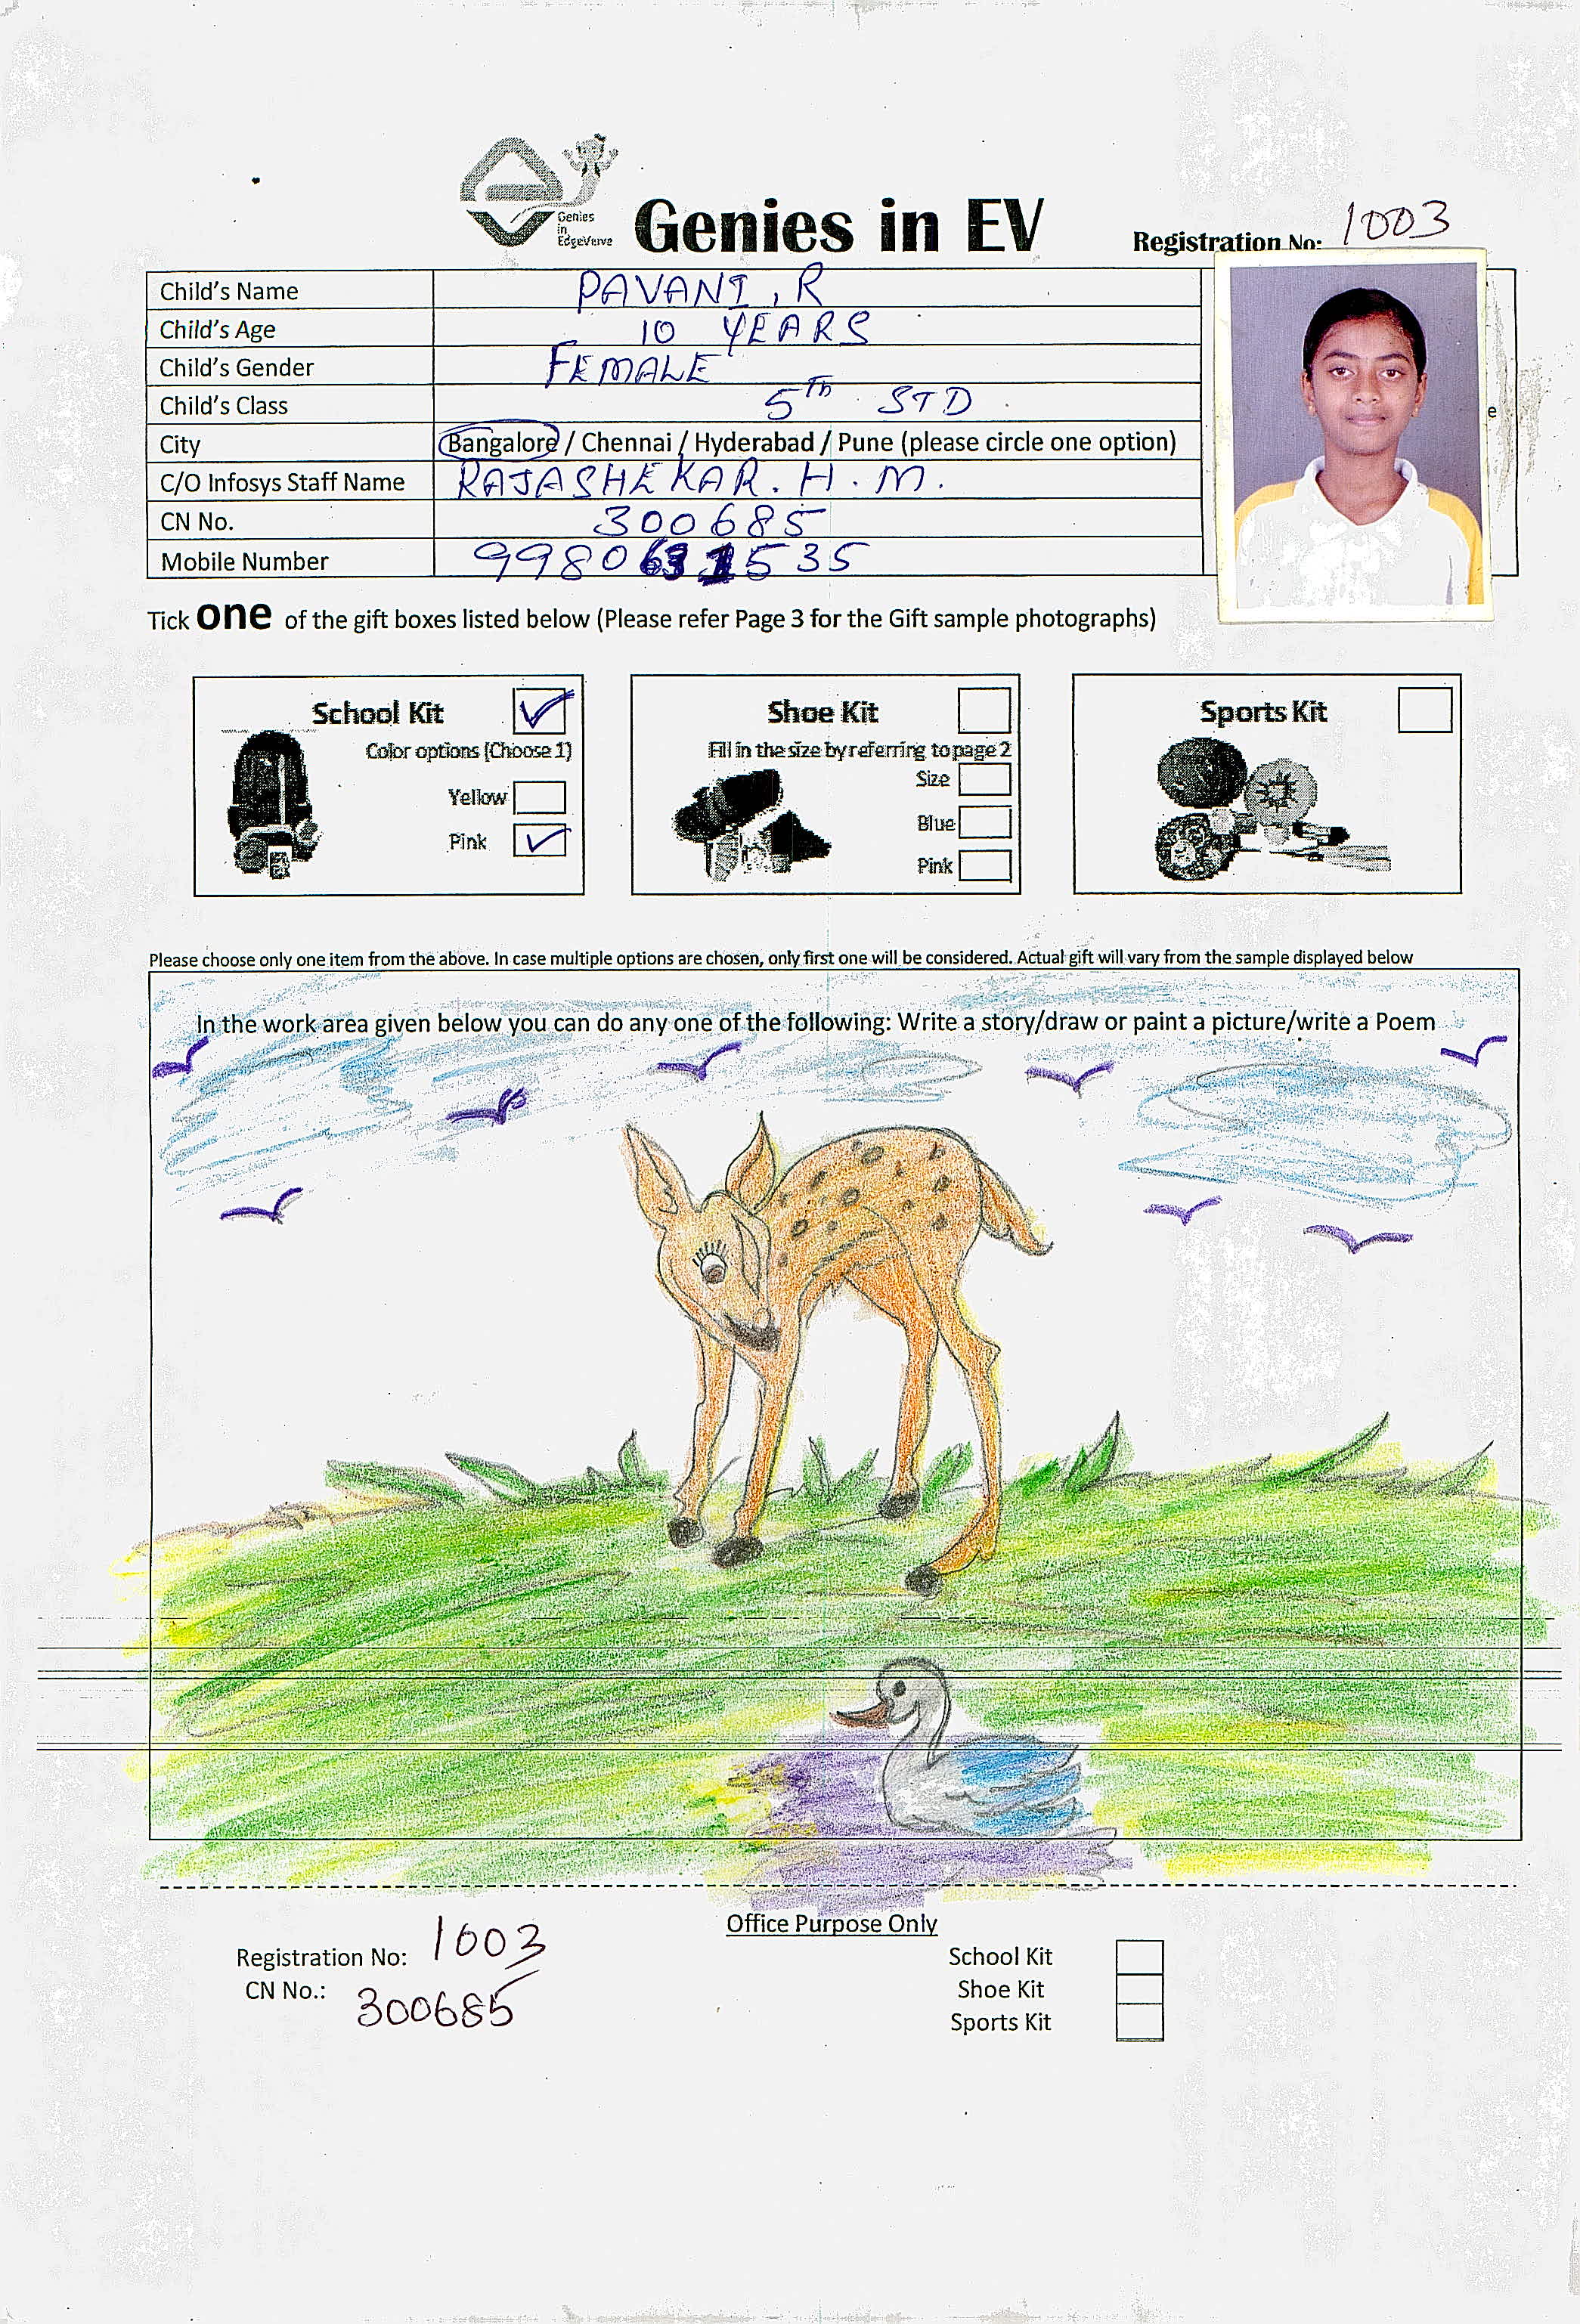 Genies
in
EdgeVerve
Genies in EV
Registration No: 1003
Child's Name PAVANI, R
Child's Age 10 YEARS
Child's Gender FEMALE
Child's Class 5Th STD
City Bangalore / Chennai / Hyderabad / Pune (please circle one option)
C/O Infosys Staff Name RAJASHEKAR. H. M.
CN No. 300685
Mobile Number
e
Tick one of the gift boxes listed below (Please refer Page 3 for the Gift sample photographs)
School Kit
Color options (Choose 1)
Yellow
Pink
Shoe Kit
Fill in the size by referring to page 2
Size
Blue
Pink
Sports Kit
Please choose only one item from the above. In case multiple options are chosen, only first one will be considered. Actual gift will vary from the sample displayed below
In the work area given below you can do any one of the following: Write a story/draw or paint a picture/write a Poem
Office Purpose Only
Registration No: 1003
CN No.: 300685
School Kit
Shoe Kit
Sports Kit